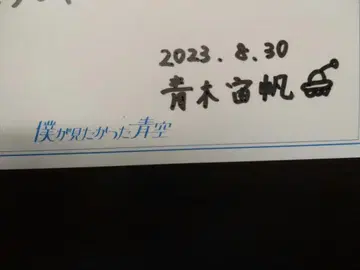 2023.8.30
青木宙帆
僕が見たかった青空